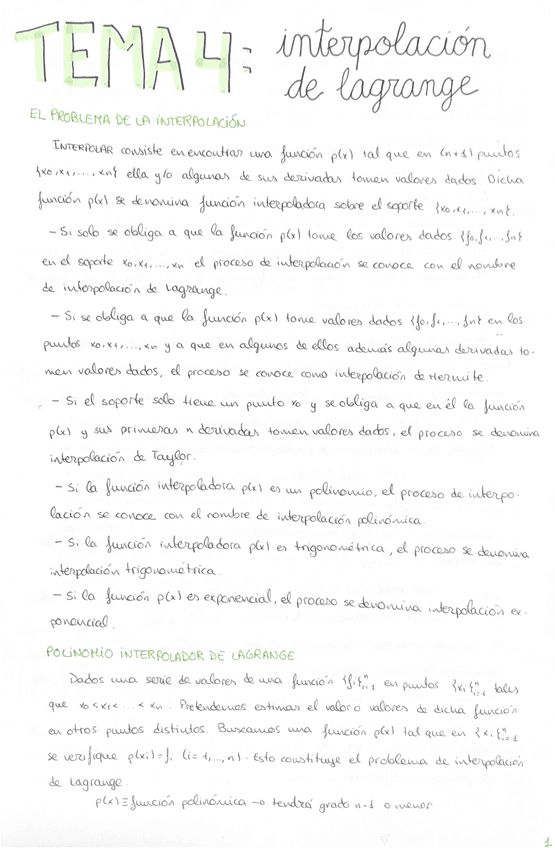 TEMA 4: interpolación
de lagrange
EL PROBLEMA DE LA INTERPOLACIÓN
INTERPOLAR consiste en encontrar una función p(x) tal que en (n+1) puntos
{x0, x1, ..., xn} ella y/o algunas de sus derivadas tomen valores dados. Dicha
función p(x) se denomina función interpoladora sobre el soporte {x0, x1, ..., xn}.
- Si solo se obliga a que la función p(x) tome los valores dados {f0, f1, ..., fn}
en el soporte x0, x1, ..., xn el proceso de interpolación se conoce con el nombre
de interpolación de Lagrange.
- Si se obliga a que la función p(x) tome valores dados {f0, f1, ..., fn} en los
puntos x0, x1, ..., xn y a que en algunos de ellos además algunas derivadas to-
men valores dados, el proceso se conoce como interpolación de Hermite.
- Si el soporte solo tiene un punto x0 y se obliga a que en él la función
p(x) y sus primeras n derivadas tomen valores dados, el proceso se denomina
interpolación de Taylor.
- Si la función interpoladora p(x) es un polinomio, el proceso de interpo-
lación se conoce con el nombre de interpolación polinómica.
- Si la función interpoladora p(x) es trigonométrica, el proceso se denomina
interpolación trigonométrica.
- Si la función p(x) es exponencial, el proceso se denomina interpolación ex-
ponencial.
POLINOMIO INTERPOLADOR DE LAGRANGE
Dados una serie de valores de una función {fi}ⁿi=1 en puntos {xi}ⁿi=1 tales
que x0 < x1 < ... < xn. Pretendemos estimar el valor o valores de dicha función
en otros puntos distintos. Buscamos una función p(x) tal que en {xi}ⁿi=1
se verifique p(xi) = fi (i = 1, ..., n). Esto constituye el problema de interpolación
de Lagrange.
p(x) ≡ función polinómica → tendrá grado n-1 o menor
1